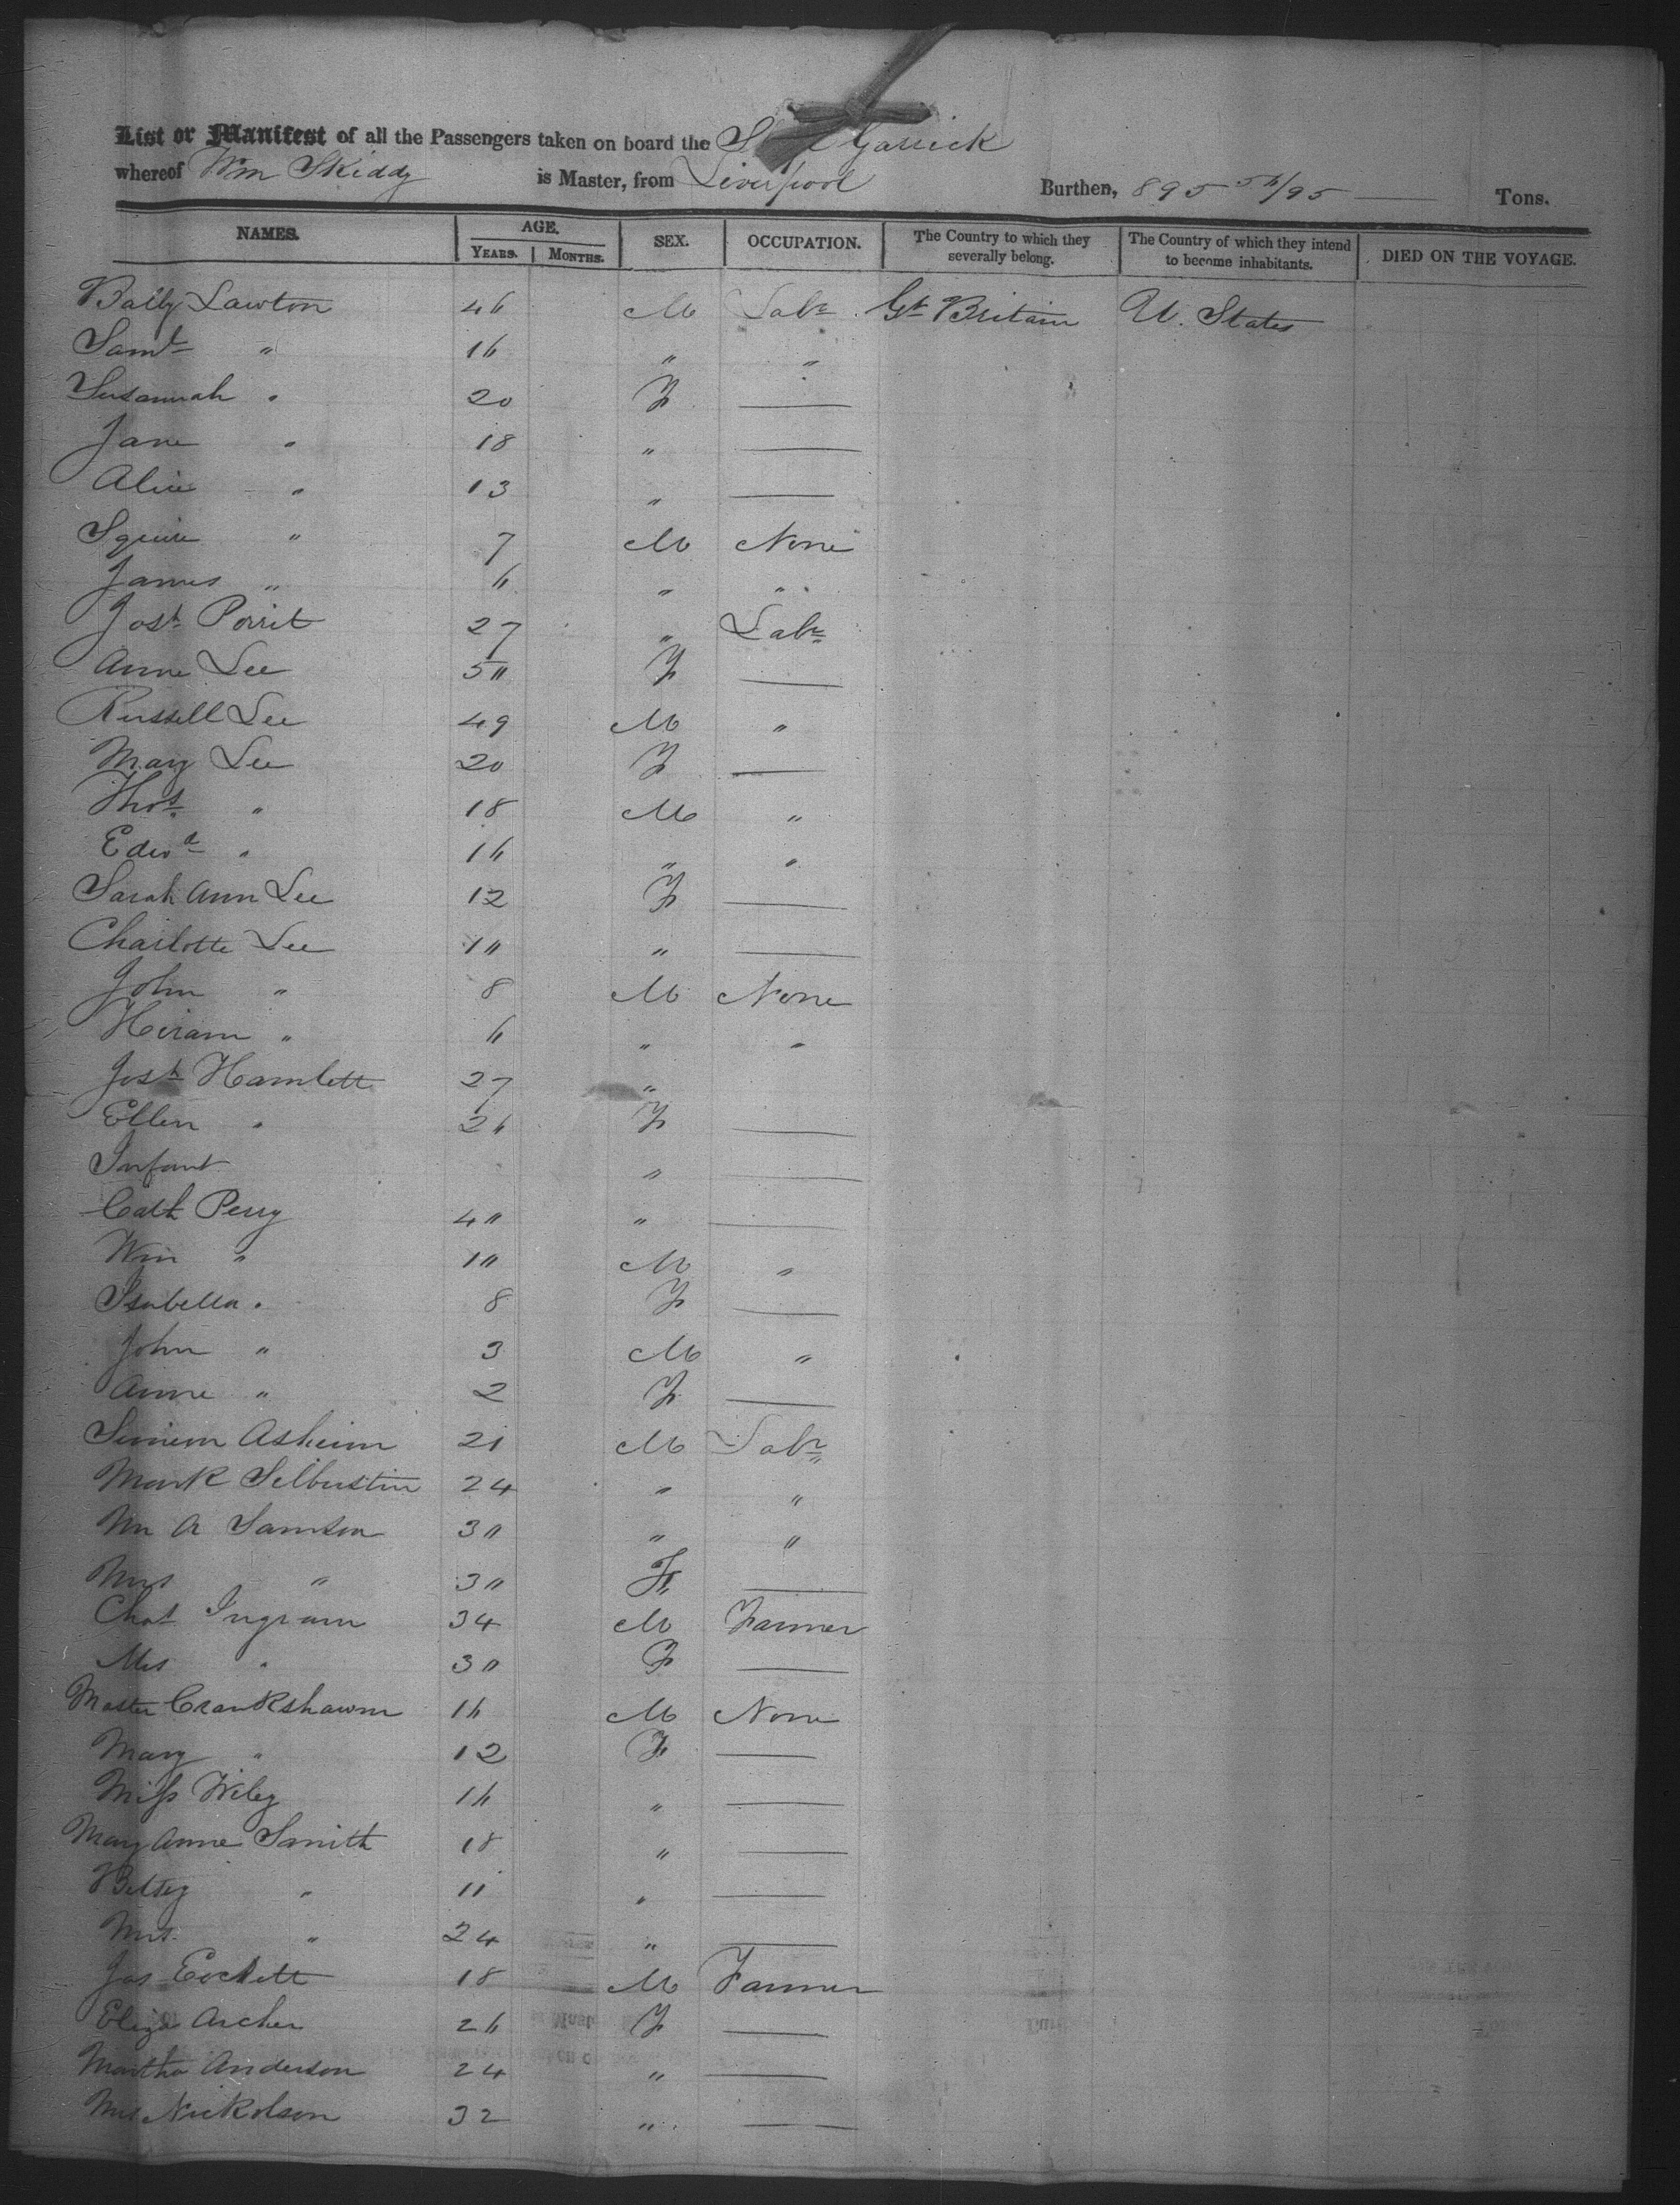 List or Manifest of all the Passengers taken on board the S Garrick
whereof Wm Skiddy is Master, from Liverpool Burthen, 895 56/95 Tons.
NAMES. AGE. SEX. OCCUPATION. The Country to which they severally belong. The Country of which they intend to become inhabitants. DIED ON THE VOYAGE.
YEARS. MONTHS.
Betty Lawton 46 M Labr Gt Britain U. States
Saml " 16 " "
Susannah " 20 F —
Jane " 18 " —
Alice " 13 " —
Squire " 7 M None
James " 6 " "
Josh Porrit 27 " Labr
Anne Lee 50 F —
Russell Lee 49 M "
Mary Lee 20 F —
Thos " 18 M "
Edwd " 16 " "
Sarah Ann Lee 12 F —
Charlotte Lee 10 " —
John " 8 M None
Hiram " 6 " "
Josh Hamlett 27 "
Ellen " 26 F —
Infant " —
Cath Perry 40 " —
Wm " 10 M "
Isabella " 8 F —
John " 3 M "
Anne " 2 F —
Simeon Asheim 21 M Labr
Mark 24 " "
A Samson 30 " "
Mrs " 30 F —
Chas Ingram 34 M Farmer
Mrs " 30 F —
Master Crankshawm 16 M None
Mary " 12 F —
Miss Wiley 16 " —
Mary Anne Smith 18 " —
Betsey " 11 " —
Mrs. " 24 " —
Jas 18 M Farmer
Eliza Archer 26 F —
Martha Anderson 24 " —
Mrs Nickolson 32 " —